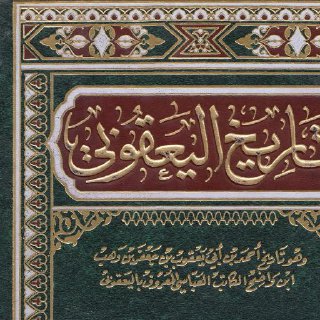 تاريخ اليعقوبي
وهو تاريخ أحمد بن أبي يعقوب بن جعفر بن وهب
ابن واضح الكاتب العباسي المعروف باليعقوبي